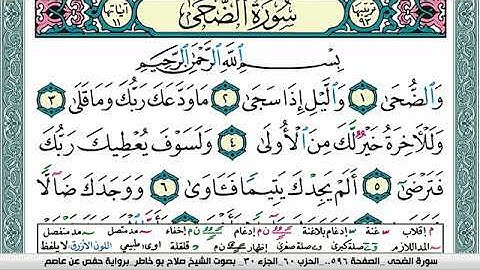 ترتيبها ٩٣ سُورَةُ الضُّحَىٰ آياتها ١١
بِسْمِ اللَّهِ الرَّحْمَٰنِ الرَّحِيمِ
وَالضُّحَىٰ ١ وَاللَّيْلِ إِذَا سَجَىٰ ٢ مَا وَدَّعَكَ رَبُّكَ وَمَا قَلَىٰ ٣
وَلَلْآخِرَةُ خَيْرٌ لَّكَ مِنَ الْأُولَىٰ ٤ وَلَسَوْفَ يُعْطِيكَ رَبُّكَ
فَتَرْضَىٰ ٥ أَلَمْ يَجِدْكَ يَتِيمًا فَـَٔاوَىٰ ٦ وَوَجَدَكَ ضَالًّا
م إقلاب غنة إدغام بلاغنة إدغام ن م إخفاء مد متصل مد منفصل
المد اللازم صلة كبرى صلة صغرى إظهار ن م قلقلة ا و ى: طبيعي اللون الأزرق: لا يلفظ
سورة الضحى _الصفحة ٥٩٦_ الحزب ٦٠_ الجزء ٣٠_ بصوت الشيخ صلاح بو خاطر_برواية حفص عن عاصم